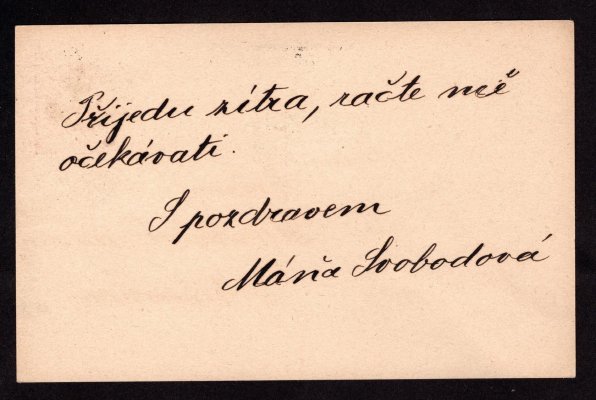 Přijedu zítra, račte mě
očekávati.
S pozdravem
Máňa Svobodová